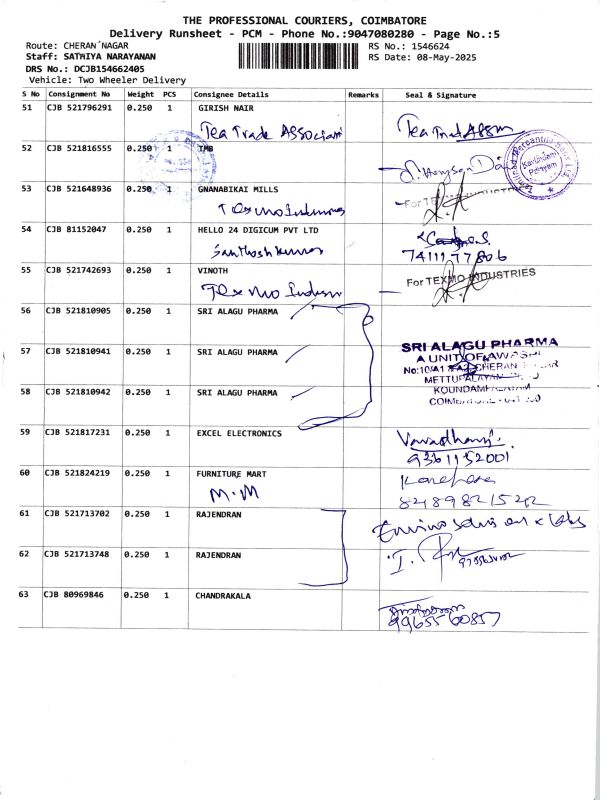 THE PROFESSIONAL COURIERS, COIMBATORE
Delivery Runsheet - PCM - Phone No.:9047080280 - Page No.:5
Route: CHERAN NAGAR
RS No.: 1546624
Staff: SATHIYA NARAYANAN
RS Date: 08-May-2025
DRS No.: DCJB154662405
Vehicle: Two Wheeler Delivery
S No Consignment No Weight PCS Consignee Details Remarks Seal & Signature
51 CJB 521796291 0.250 1 GIRISH NAIR
Tea Trade Association Tea Trad Assn
52 CJB 521816555 0.250 1 TMB
Tamilnad Mercantile Bank Ltd. Kavundam Palayam
53 CJB 521648936 0.250 1 GNANABIKAI MILLS
For TEXMO INDUSTRIES
Texmo Industries
54 CJB 81152047 0.250 1 HELLO 24 DIGICUM PVT LTD
Santhosh kumar 7411177806
55 CJB 521742693 0.250 1 VINOTH
For TEXMO INDUSTRIES
Texmo Indus
56 CJB 521810905 0.250 1 SRI ALAGU PHARMA
57 CJB 521810941 0.250 1 SRI ALAGU PHARMA
SRI ALAGU PHARMA
A UNIT OF
No:10/A1 CHERAN NAGAR
METTUPALAYAM
KOUNDAMPALAYAM
COIMBATORE
58 CJB 521810942 0.250 1 SRI ALAGU PHARMA
59 CJB 521817231 0.250 1 EXCEL ELECTRONICS
9361152001
60 CJB 521824219 0.250 1 FURNITURE MART
M.M 8489821542
61 CJB 521713702 0.250 1 RAJENDRAN
62 CJB 521713748 0.250 1 RAJENDRAN
63 CJB 80969846 0.250 1 CHANDRAKALA
9965560857